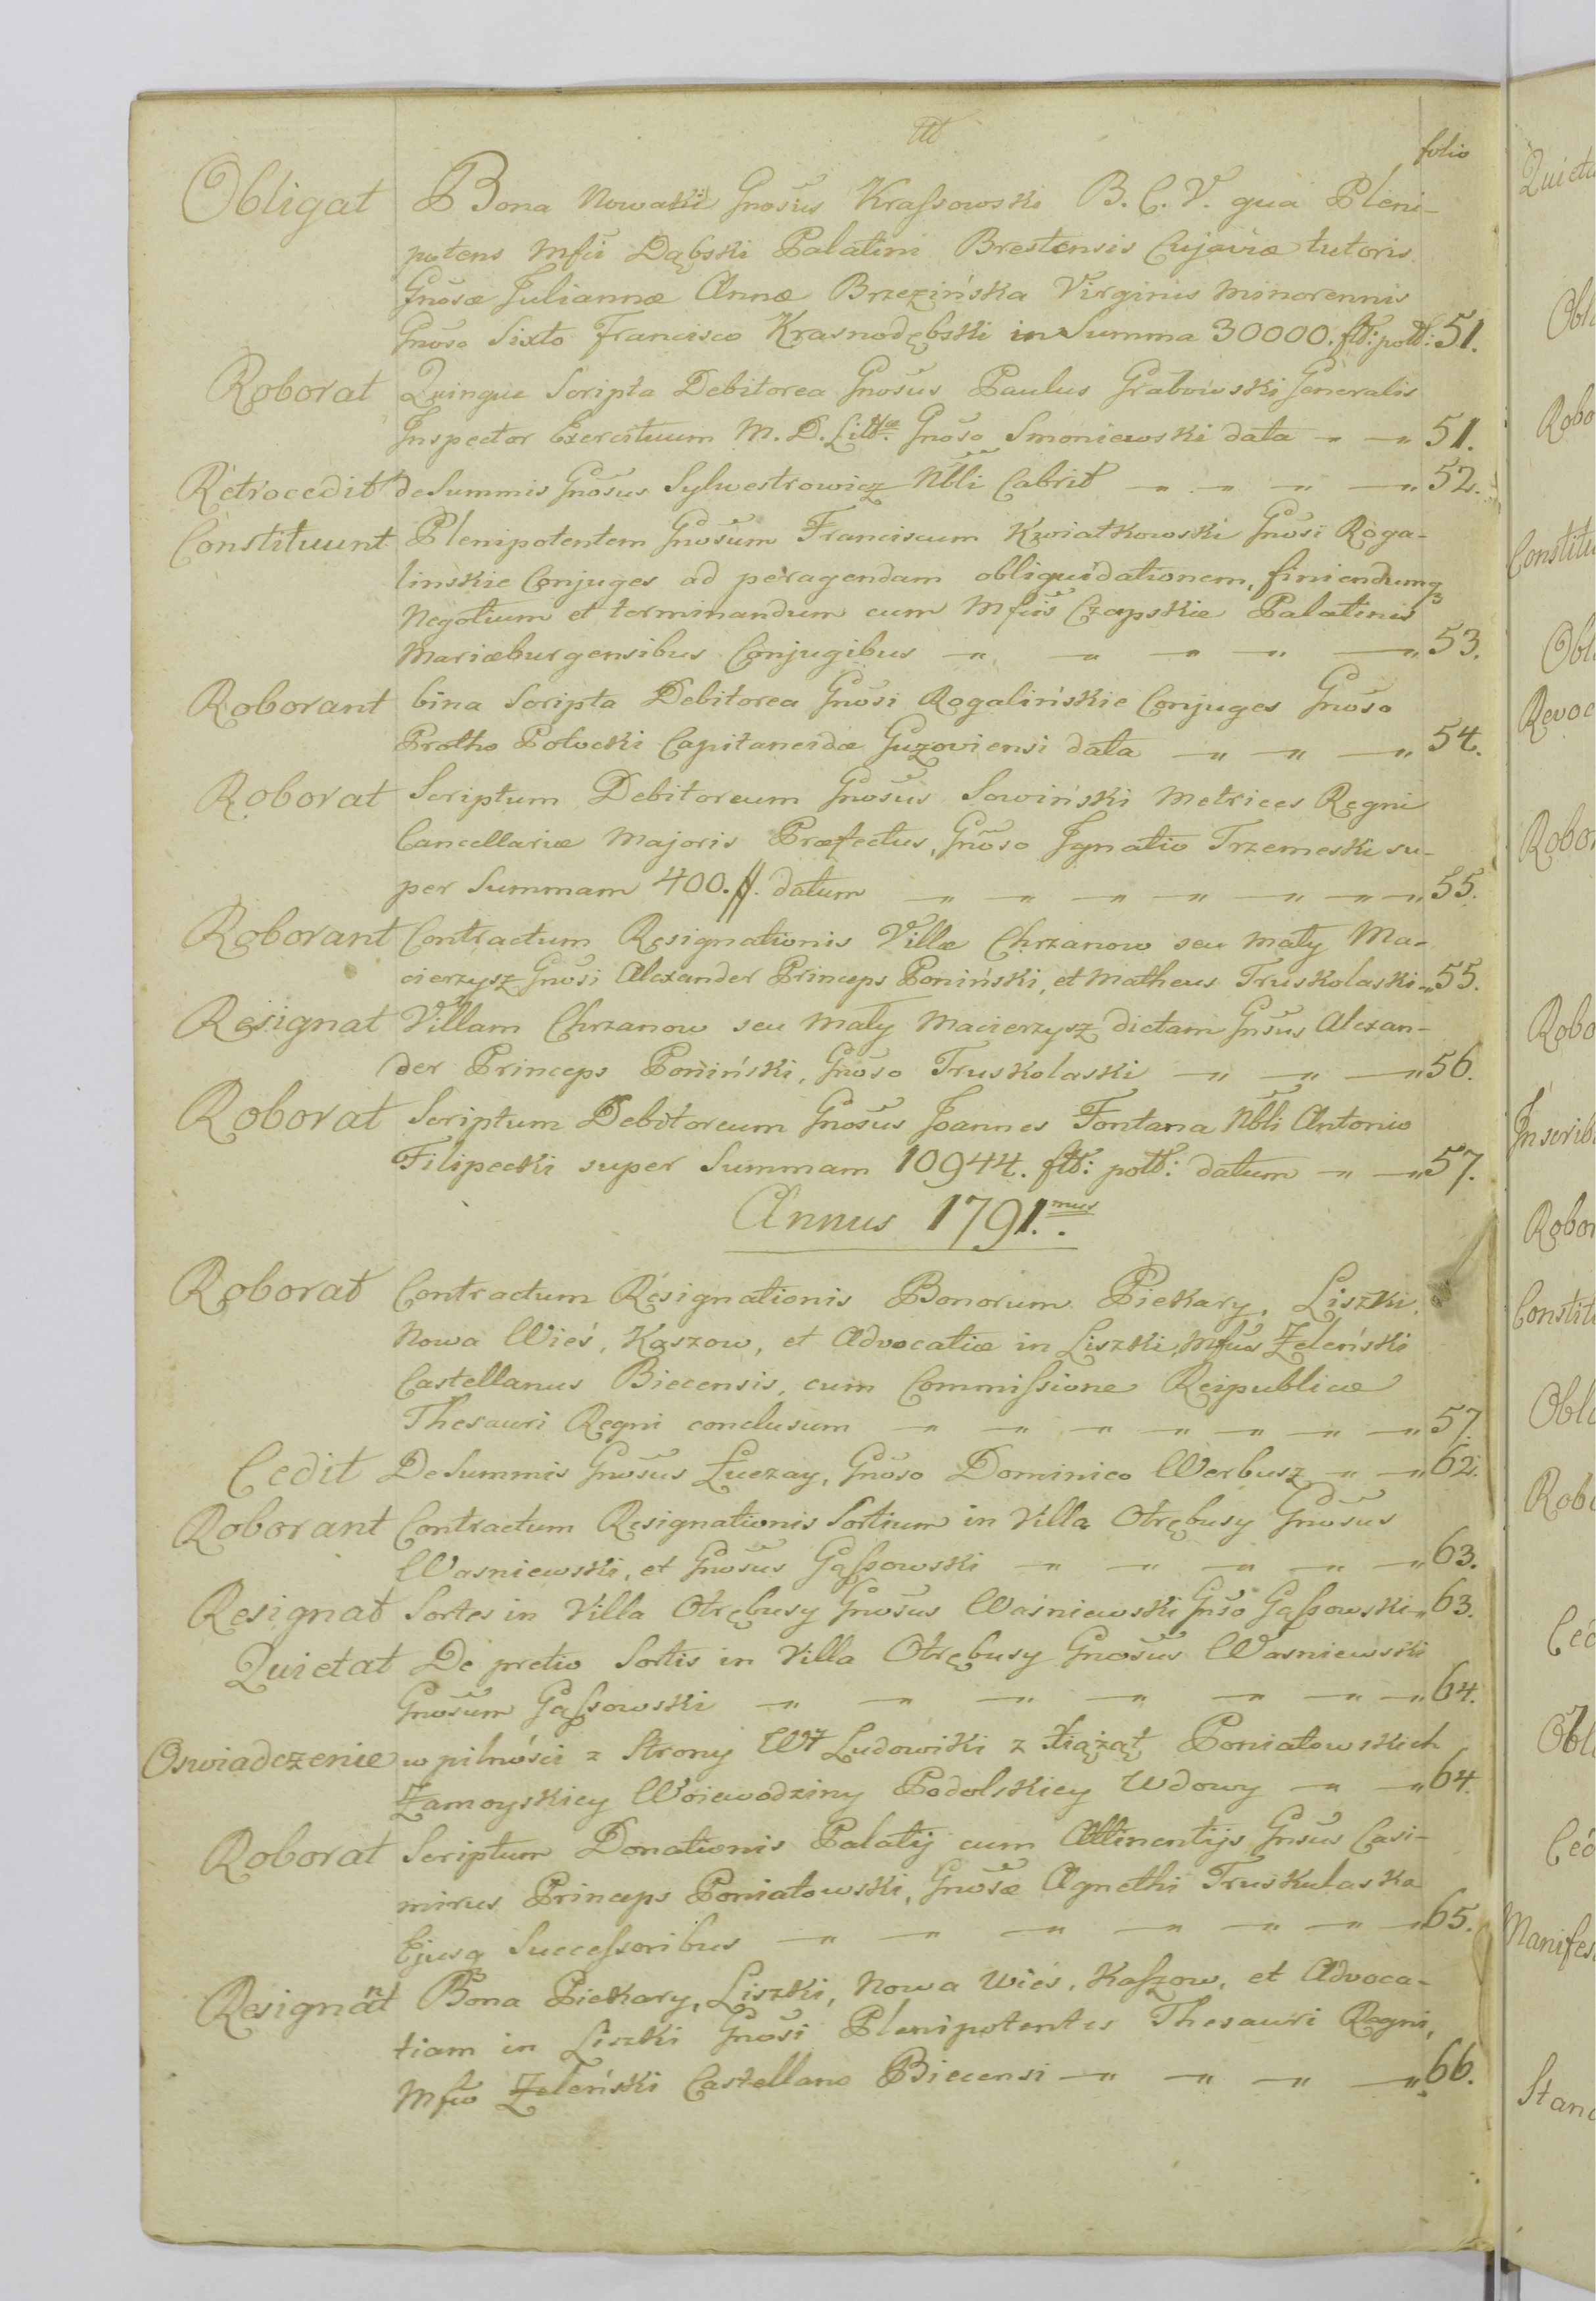 folio
Obligat Bona Nowaki Gnosus Krassowski B. C. V. qua Pleni-
potens Mfci Dąbski Palatini Brestensis Cujaviæ tutoris
Gnosæ Juliannæ Annæ Brzezińska Virginis minorennis
Gnoso Sixto Francisco Krasnodębski in Summa 30000. fl: pol: 51.
Roborat Quinque Scripta Debitorea Gnosus Paulus Grabowski Generalis
Inspector Exercituum M. D. Litt. Gnoso Smoniewski data 51.
Retrocedit de Summis Gnosus Sylwestrowicz Nbli Cabrit 52.
Constituunt Plenipotentem Gnosum Franciscum Kwiatkowski Gnosi Roga-
linskie Conjuges ad peragendam obliquidationem, finiendumq
Negotium et terminandum cum Mfcis Czapskie Palatinis
Mariæburgensibus Conjugibus 53.
Roborant bina Scripta Debitorea Gnosi Rogalińskie Conjuges Gnoso
Protho Potocki Capitaneidæ Guzoviensi data 54.
Roborat Scriptum Debitoreum Gnosus Sowiński Metrices Regni
Cancellariæ Majoris Præfectus, Gnoso Ignatio Trzemeski su-
per Summam 400. #. datum 55.
Roborant Contractum Resignationis Villæ Chrzanow seu mały Ma-
cierzysz Gnosi Alexander Princeps Poniński, et Matheus Truskolaski 55.
Resignat Villam Chrzanow seu mały Macierzysz dictam Gnsus Alexan-
der Princeps Poniński, Gnoso Truskolaski 56.
Roborat Scriptum Debitoreum Gnosus Joannes Fontana Nbli Antonio
Filipecki super Summam 10944. fl: pol: datum 57.
Annus 1791.mus
Roborat Contractum Resignationis Bonorum Piekary, Liszki,
Nowa Wieś, Kaszow, et Advocatiæ in Liszki, Mfcus Żeleński
Castellanus Biecensis, cum Commissione Reipublicæ
Thesauri Regni conclusum 57.
Cedit De Summis Gnosus Łuczay, Gnoso Dominico Werbusz 62.
Roborant Contractum Resignationis Sortium in Villa Otrębusy Gnosus
Wasniewski, et Gnosus Gąssowski 63.
Resignat Sortes in Villa Otrębusy Gnosus Waśniewski Gnso Gąssowski 63.
Quietat De pretio Sortis in Villa Otrębusy Gnosus Wasniewski
Gnosum Gąssowski 64.
Oswiadczenie w pilności z Strony Wy Ludowiki z Xiążąt Poniatowskich
Zamoyskiey Woiewodziny Podolskiey Wdowy 64.
Roborat Scriptum Donationis Palatij cum Attinentijs Gnsus Casi-
mirus Princeps Poniatowski, Gnosæ Agnethi Truskulaska
Ejusq Successoribus 65.
Resignant Bona Piekary, Liszki, Nowa Wies, Kaszow, et Advoca-
tiam in Liszki Gnosi Plenipotentes Thesauri Regni,
Mfco Żeleński Castellano Biecensi 66.